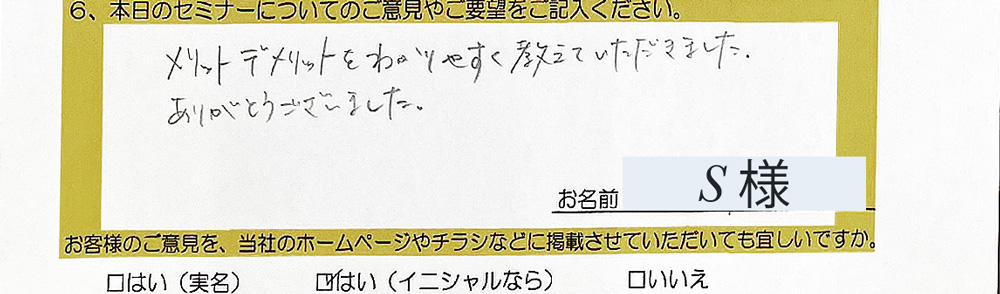 6、本日のセミナーについてのご意見やご要望をご記入ください。
メリットデメリットをわかりやすく教えていただきました.
ありがとうございました。
お名前 S 様
お客様のご意見を、当社のホームページやチラシなどに掲載させていただいても宜しいですか。
□はい（実名） ☑はい（イニシャルなら） □いいえ